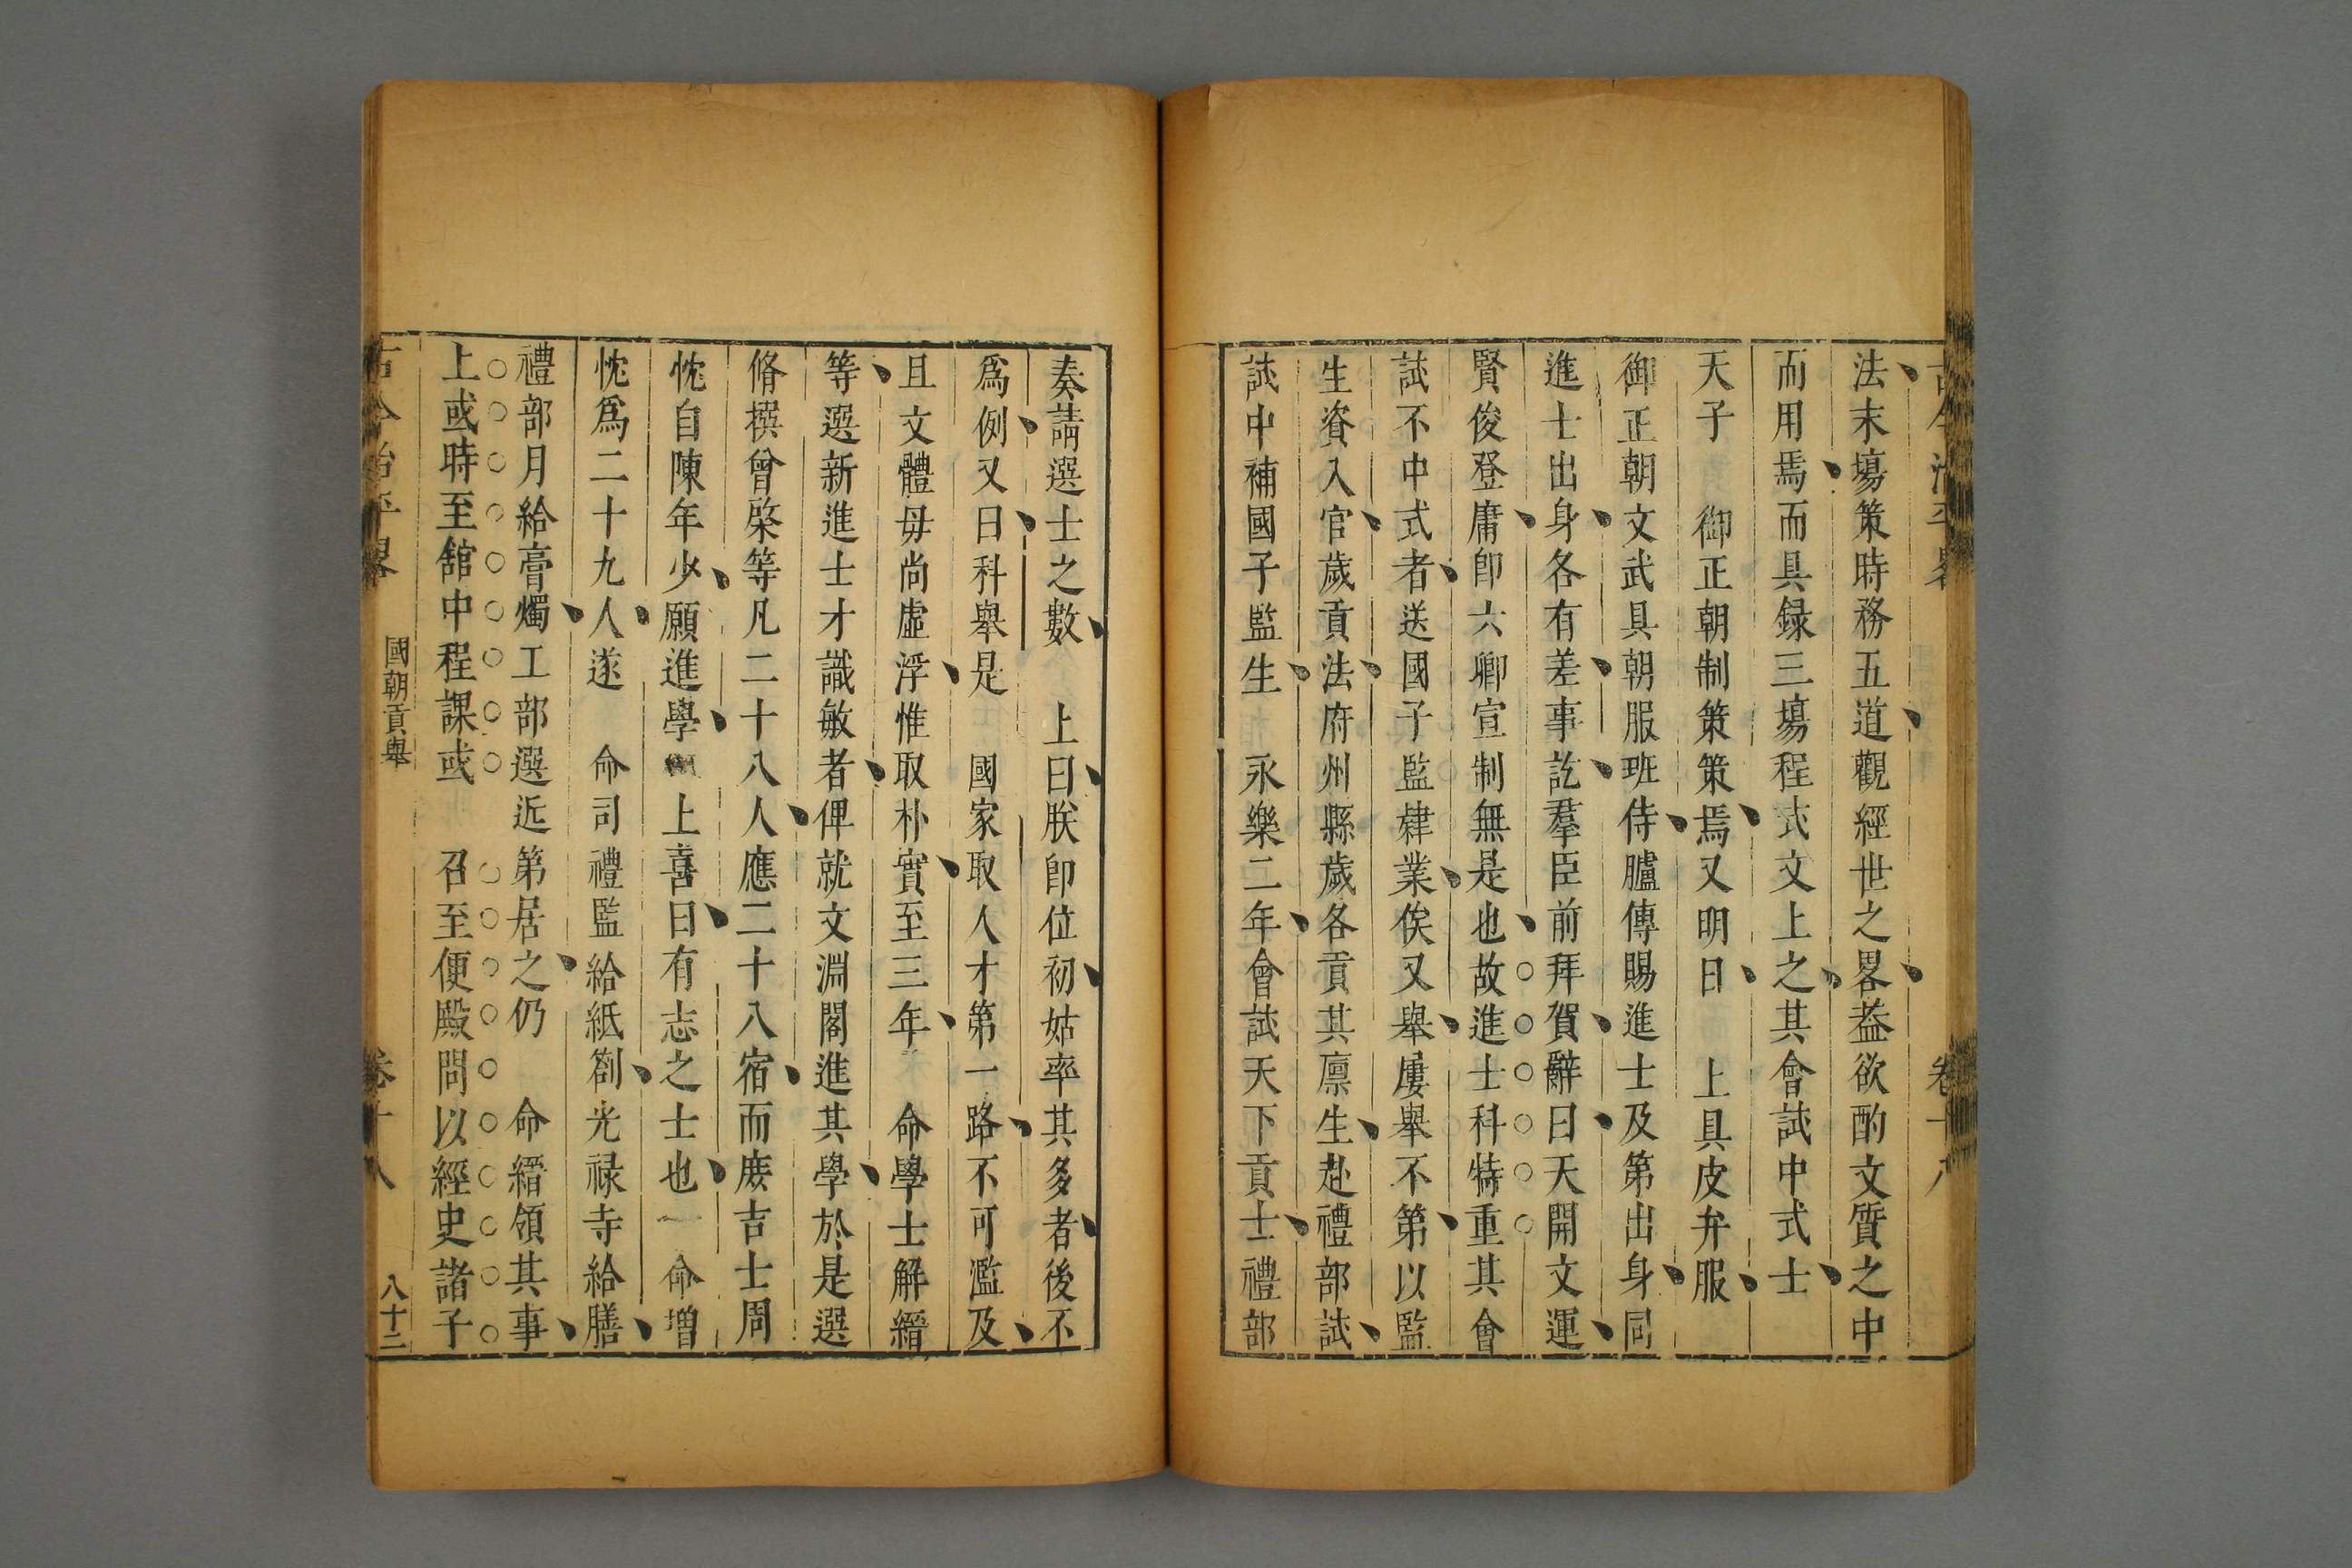 古今治平畧 卷十八
法末塲策時務五道觀經世之畧葢欲酌文質之中
而用焉而具録三塲程式文上之其會試中式士
天子 御正朝制策策焉又明日 上具皮弁服
御正朝文武具朝服班侍臚傳賜進士及第出身同
進士出身各有差事訖羣臣前拜賀辭曰天開文運
賢俊登庸卽六卿宣制無是也故進士科特重其會
試不中式者送國子監肄業俟又舉屢舉不第以監
生資入官歲貢法府州縣歲各貢其廪生赴禮部試
試中補國子監生 永樂二年會試天下貢士禮部
奏請選士之數 上曰朕卽位初姑率其多者後不
爲例又曰科舉是 國家取人才第一路不可濫及
且文體毋尚虛浮惟取朴實至三年 命學士解縉
等選新進士才識敏者俾就文淵閣進其學於是選
脩撰曾棨等凡二十八人應二十八宿而庻吉士周
忱自陳年少願進學 上喜曰有志之士也 命增
忱爲二十九人遂 命司禮監給紙劄光禄寺給膳
禮部月給膏燭工部選近第居之仍 命縉領其事
上或時至舘中程課或 召至便殿問以經史諸子
古今治平畧 國朝貢舉 卷十八 八十二